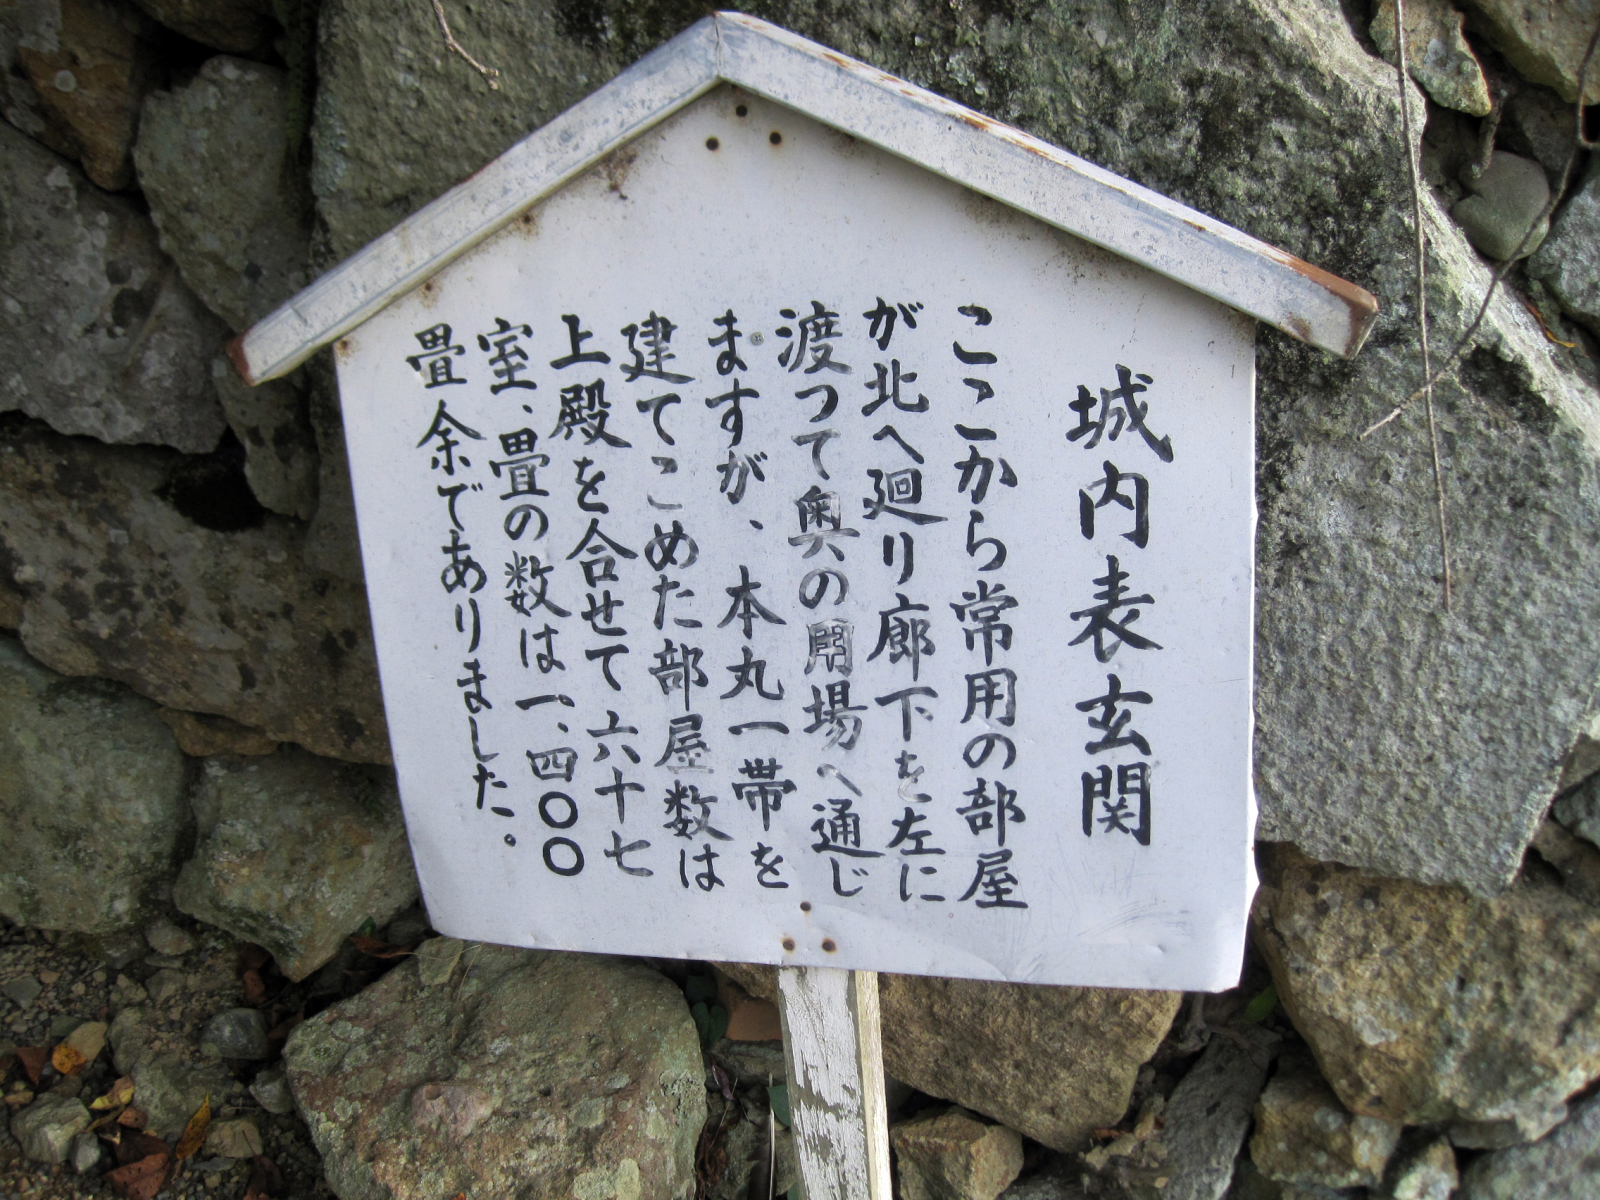 城内表玄関
ここから常用の部屋
が北へ廻り廊下を左に
渡つて奥の間場へ通じ
ますが、本丸一帯を
建てこめた部屋数は
上殿を合せて六十七
室、畳の数は一、四〇〇
畳余でありました。